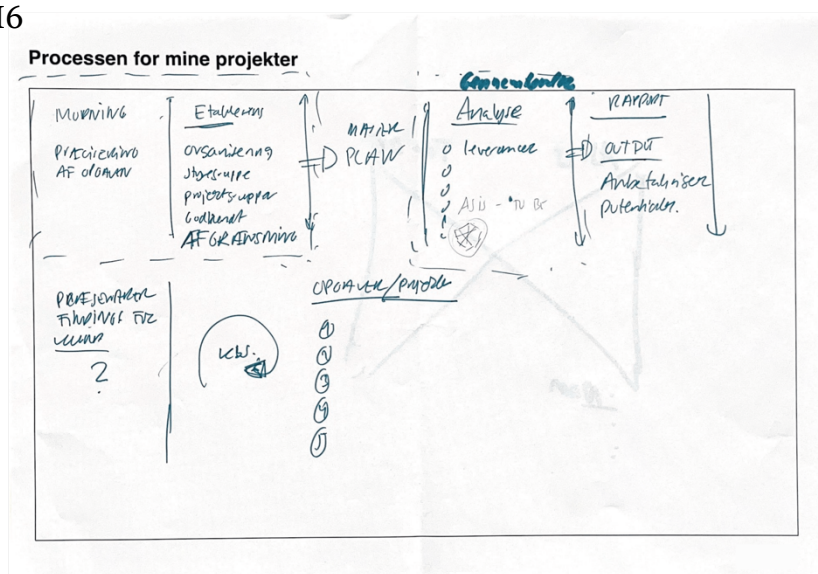 I6
Processen for mine projekter
Gennemførelse
MODNING
Præcisering
AF OPGAVEN
Etablering
Organisering
Styregruppe
projektgrupper
Godkendt
AFGRÆNSNING
MASTER
PLAN
Analyse
leverancer
AS is - TO BE
RAPPORT
OUTPUT
Anbefalinger
Potentialer.
PRÆSENTERER
FINDINGS FOR
?
OPGAVER/projekter
1
2
3
4
5